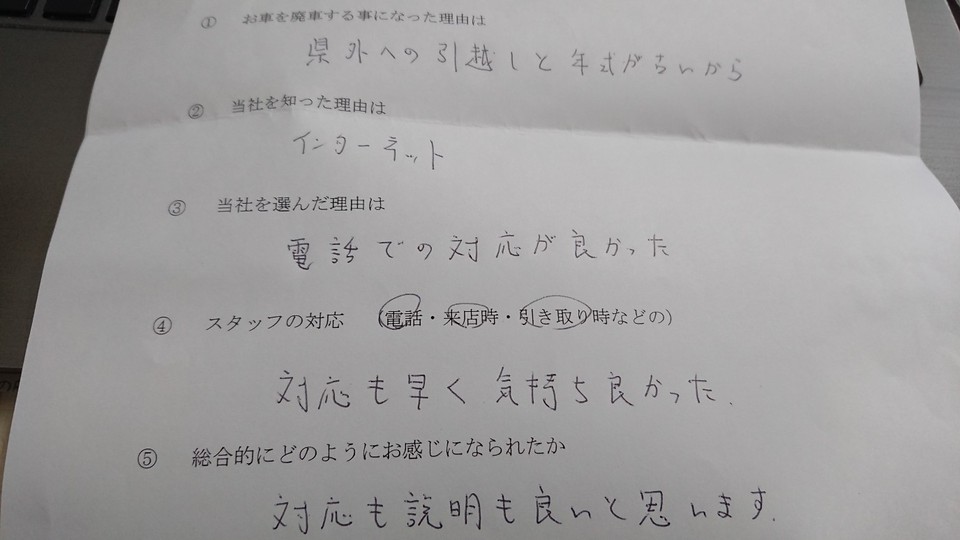 ① お車を廃車する事になった理由は
県外への引越しと年式が古いから
② 当社を知った理由は
インターネット
③ 当社を選んだ理由は
電話での対応が良かった
④ スタッフの対応 (電話・来店時・引き取り時などの)
対応も早く気持ち良かった.
⑤ 総合的にどのようにお感じになられたか
対応も説明も良いと思います.